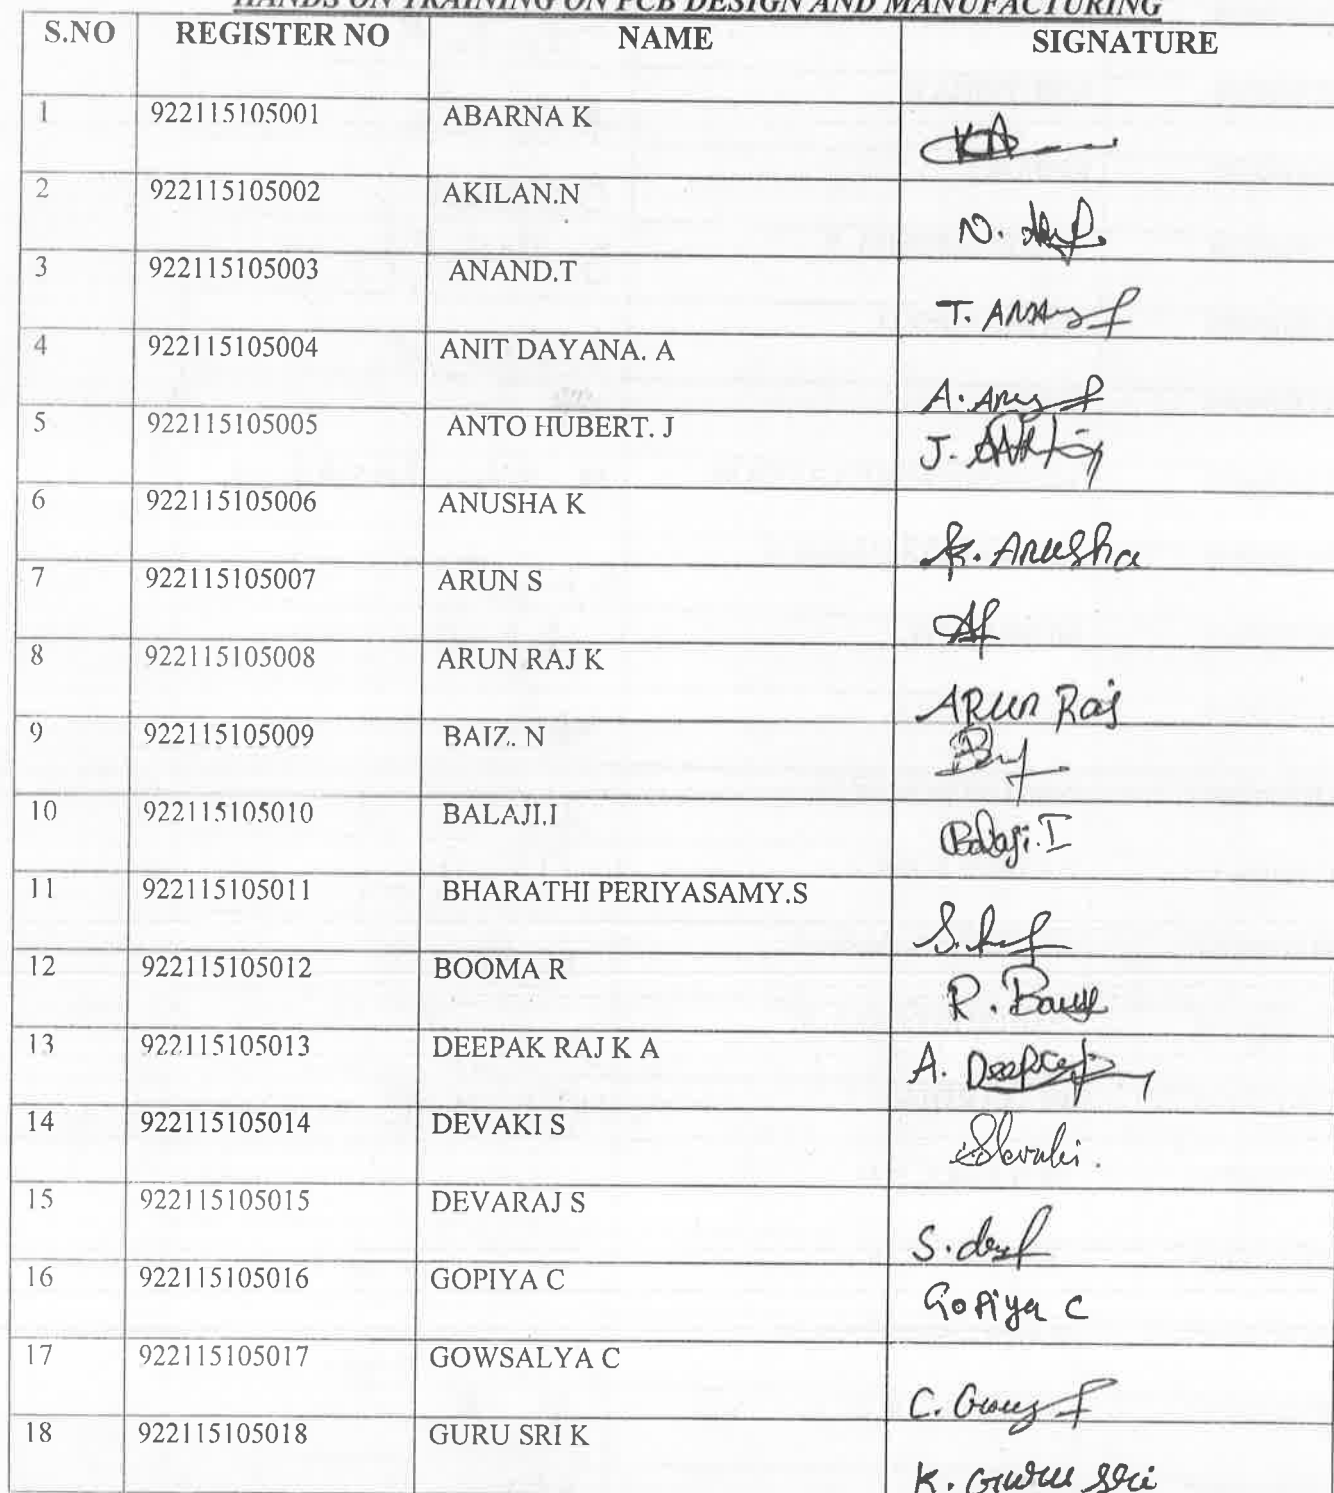 HANDS ON TRAINING ON PCB DESIGN AND MANUFACTURING
S.NO REGISTER NO NAME SIGNATURE
1 922115105001 ABARNA K
2 922115105002 AKILAN.N N.
3 922115105003 ANAND.T T.
4 922115105004 ANIT DAYANA. A A.
5 922115105005 ANTO HUBERT. J J.
6 922115105006 ANUSHA K K. Anusha
7 922115105007 ARUN S
8 922115105008 ARUN RAJ K ARUN Raj
9 922115105009 BAIZ. N
10 922115105010 BALAJI.I Balaji. I
11 922115105011 BHARATHI PERIYASAMY.S S.
12 922115105012 BOOMA R R.
13 922115105013 DEEPAK RAJ K A A. Deepak
14 922115105014 DEVAKI S
15 922115105015 DEVARAJ S S.
16 922115105016 GOPIYA C Gopiya C
17 922115105017 GOWSALYA C C.
18 922115105018 GURU SRI K K. Guru Sri